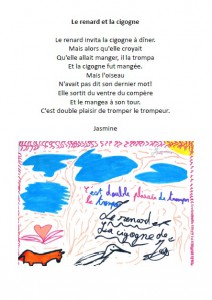 Le renard et la cigogne
Le renard invita la cigogne à dîner.
Mais alors qu'elle croyait
Qu'elle allait manger, il la trompa
Et la cigogne fut mangée.
Mais l'oiseau
N'avait pas dit son dernier mot!
Elle sortit du ventre du compère
Et le mangea à son tour.
C'est double plaisir de tromper le trompeur.
Jasmine
C'est double plaisir de tromper
le trompe
Le renard
La cigogne de